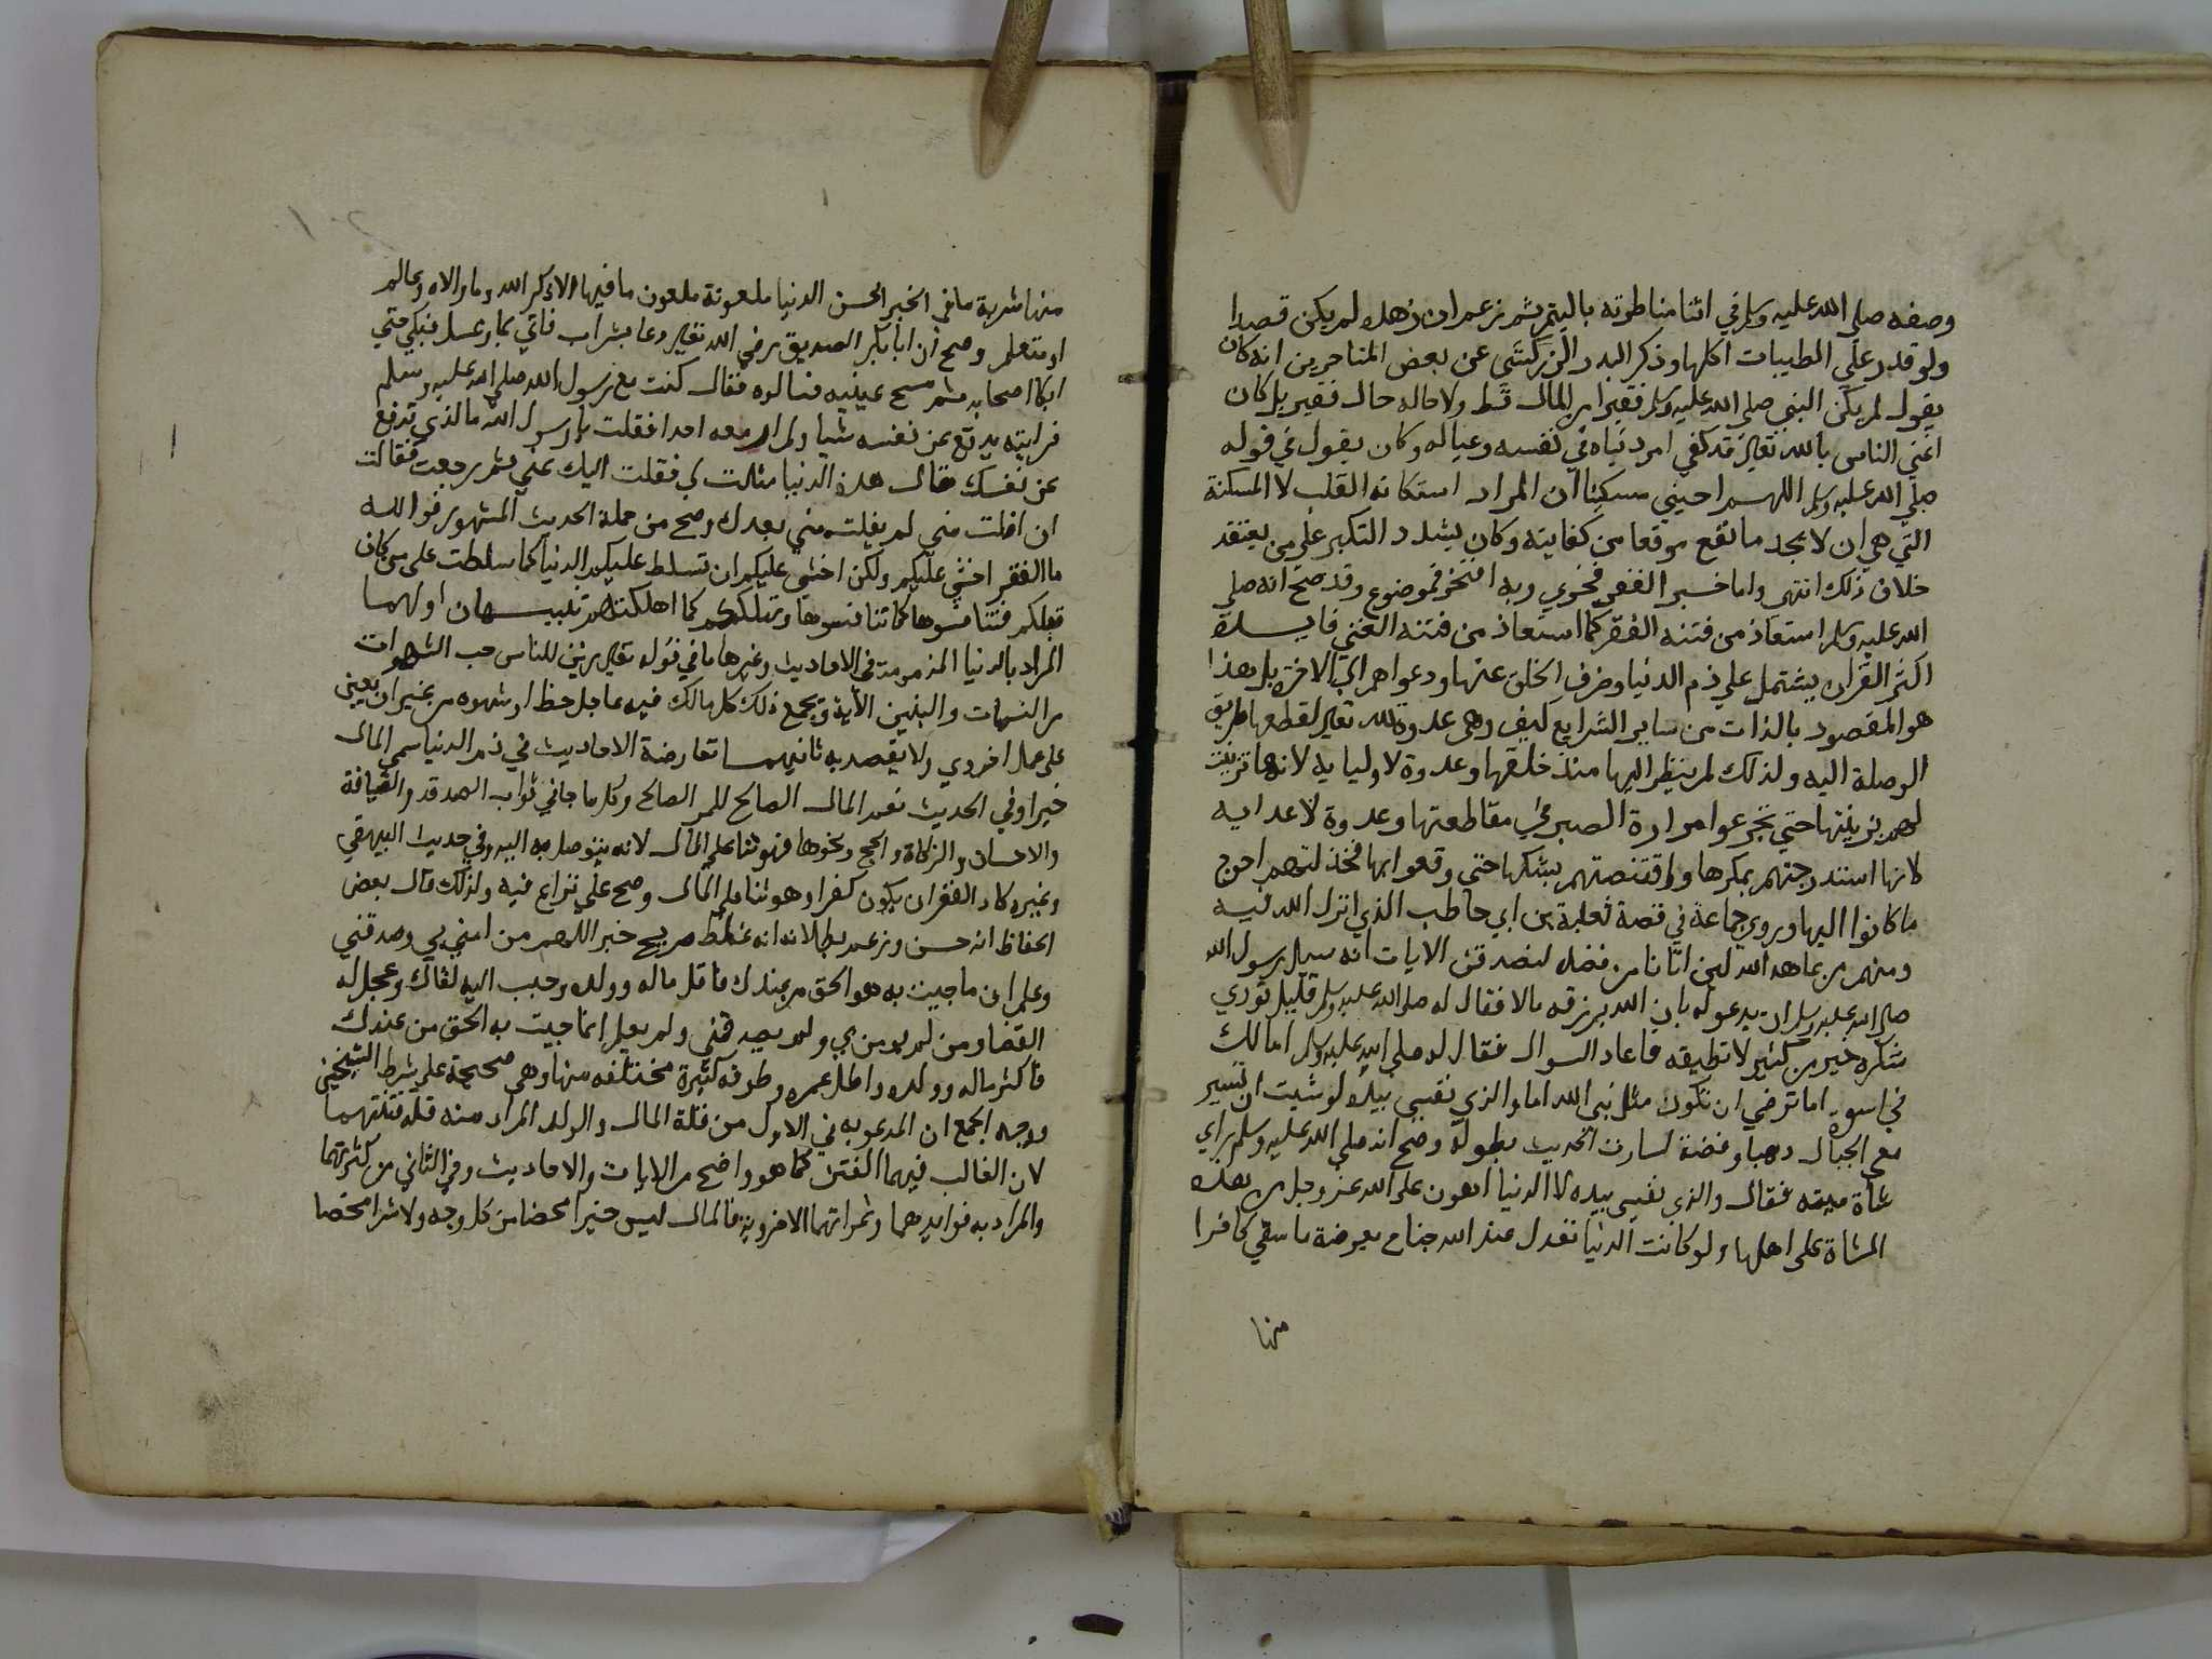 وصفه صلي الله عليه وسلم في اثنا مناظرته باليتم ثم زعم ان زهده لم يكن قصدا
ولو قدر علي الطيبات اكلها وذكر البدر الزركشي عن بعض المتاخرين انه كان
يقول لم يكن النبي صلي الله عليه وسلم فقيرا من المال قط ولا حاله حال فقير بل كان
اغني الناس بالله تعالي قد كفي امر دنياه في نفسه وعياله وكان يقول في قوله
صلي الله عليه وسلم اللهم احيني مسكينا ان المراد استكانه القلب لا المسكنة
التي هي ان لا يجد ما يقع موقعا من كفايته وكان يشدد النكير علي من يعتقد
خلاف ذلك انتهي واما خبر الفقر فخري وبه افتخر فموضوع وقد صح انه صلي
الله عليه وسلم استعاذ من فتنه الفقر كما استعاذ من فتنه الغني فايدة
اكثر القران يشتمل علي ذم الدنيا وصرف الخلق عنها ودعواهم الي الاخرة بل هذا
هو المقصود بالذات من ساير الشرايع كيف وهي عدوة لله تعالي لقطعها طريق
الوصلة اليه ولذلك لم ينظر اليها منذ خلقها وعدوة لاوليايه لانها تزينت
لهم بزينتها حتي تجرعوا مرارة الصبر في مقاطعتها وعدوة لاعدايه
لانها استدرجتهم بمكرها واقتنصتهم بشبكها حتي وقعوا بها فخذلتهم احوج
ما كانوا اليها وروي جماعة في قصة ثعلبة بن ابي حاطب الذي انزل الله فيه
ومنهم من عاهد الله لين اتانا من فضله لنصدقن الايات انه سال رسول الله
صلي الله عليه وسلم ان يدعو له بان الله يرزقه مالا فقال له صلي الله عليه وسلم قليل تؤدي
شكره خير من كثير لا تطيقه فاعاد السوال فقال له صلي الله عليه وسلم اما لك
في اسوة اما ترضي ان تكون مثل نبي الله اما والذي نفسي بيده لو شيت ان تسير
معي الجبال ذهبا وفضة لسارت الحديث بطوله وصح انه صلي الله عليه وسلم راي
شاة ميته فقال والذي نفسي بيده لا الدنيا اهون علي الله عز وجل من هذه
الشاة علي اهلها ولو كانت الدنيا تعدل عند الله جناح بعوضة ما سقي كافرا
منها
منها شربة ما في الخبر الحسن الدنيا ملعونة ملعون ما فيها الا ذكر الله وما والاه وعالم
او متعلم وصح ان ابا بكر الصديق رضي الله تعالي دعا بشراب فاتي بما وعسل فبكي حتي
ابكا اصحابه ثم مسح عينيه فسالوه فقال كنت مع رسول الله صلي الله عليه وسلم
فرايته يدفع عن نفسه شيا ولم ار معه احدا فقلت يا رسول الله ما الذي تدفع
عن نفسك قال هذه الدنيا مثلت لي فقلت اليك عني ثم رجعت فقالت
ان افلت مني لم يفلت مني بعدك وصح من جملة الحديث المشهور فوالله
ما الفقر اخشي عليكم ولكن اخشي عليكم ان تسلط عليكم الدنيا كما سلطت علي من كان
قبلكم فتنافسوها كما تنافسوها وتهلككم كما اهلكتهم تنبيهان اولهما
المراد بالدنيا المذمومة في الاحاديث وغيرها ما في قوله تعالي زين للناس حب الشهوات
من النسا والبنين الاية ويجمع ذلك كل مالك فيه عاجل حظ او شهوه من غير ان يعين
علي عمل اخروي ولا يقصد به ثانيهما تعارضة الاحاديث في ذم الدنيا سمي المال
خيرا وفي الحديث نعم المال الصالح للمر الصالح وكل ما جا في ثواب الصدقه والضيافة
والاحسان والزكاة والحج ونحوها فهو ثنا علي المال لانه يتوصل به اليه وفي حديث البيهقي
وغيره كاد الفقر ان يكون كفرا وهو ثنا علي المال وصح علي نزاع فيه ولذلك قال بعض
الحفاظ انه حسن وزعم بطلانه انه غلط صريح خبر اللهم من امن بي وصدقني
وعلم ان ما جيت به هو الحق من عندك فاقل ماله وولده وحبب اليه لقاك وعجل له
القضا ومن لم يومن بي ولم يصدقني ولم يعلم ان ما جيت به الحق من عندك
فاكثر ماله وولده واطل عمره وطرقه كثيرة مختلفه منها وهي صحيحة علي شرط الشيخين
ووجه الجمع ان المدعو به في الاول من قلة المال والولد المراد منه قلة فتنتهما
لان الغالب فيهما الفتن كما هو واضح من الايات والاحاديث وفي الثاني من كثرتهما
والمراد به فوايدهما وثمراتهما الاخروية فالمال ليس خيرا محضا من كل وجه ولا شرا محضا